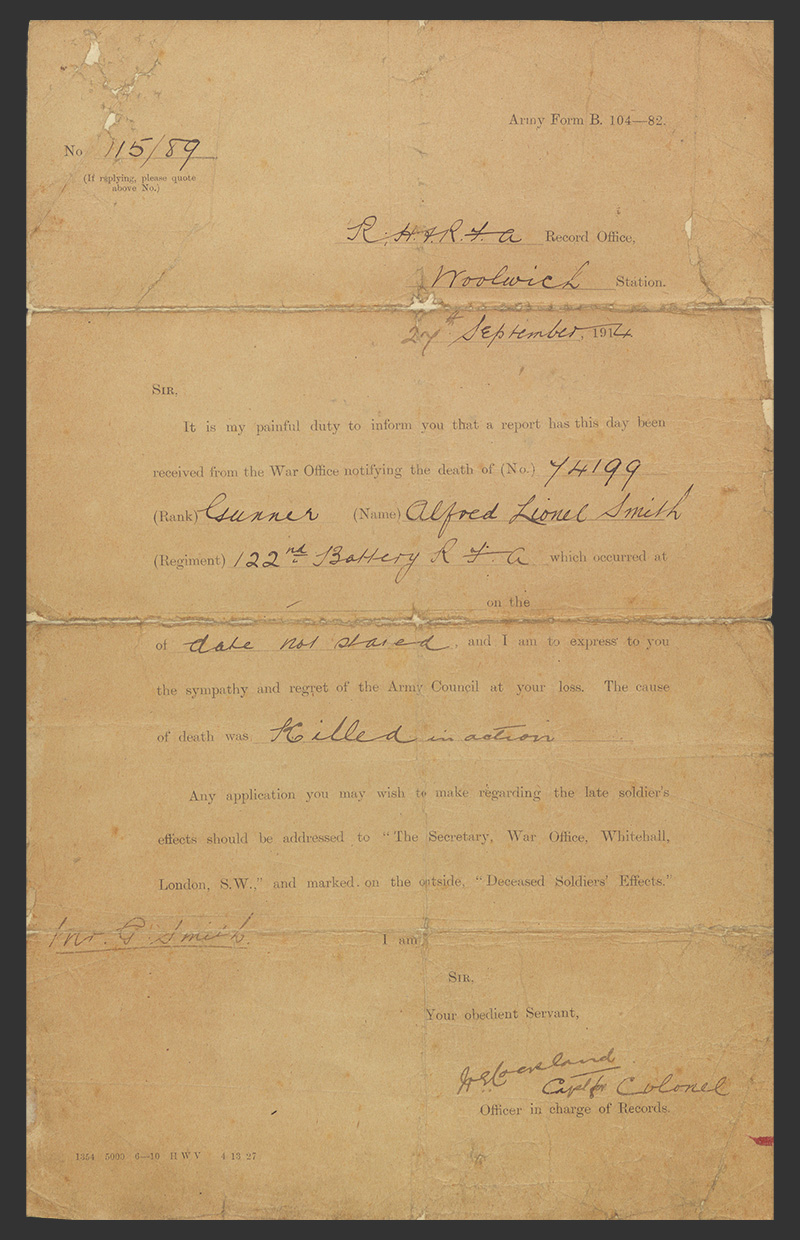 Army Form B. 104—82.
No 115/89
(If replying, please quote
above No.)
R. H. & R. F. A Record Office,
Woolwich Station.
27th September, 1914
SIR,
It is my painful duty to inform you that a report has this day been
received from the War Office notifying the death of (No.) 74199
(Rank) Gunner (Name) Alfred Lionel Smith
(Regiment) 122nd Battery R F. A which occurred at
— on the
of date not stated, and I am to express to you
the sympathy and regret of the Army Council at your loss. The cause
of death was Killed in action
Any application you may wish to make regarding the late soldier's
effects should be addressed to "The Secretary, War Office, Whitehall,
London, S.W.," and marked on the outside, "Deceased Soldiers' Effects."
Mr. G Smith.
I am
SIR,
Your obedient Servant,
Capt for Colonel
Officer in charge of Records.
1354 5000 6—10 H W V 4 13 27